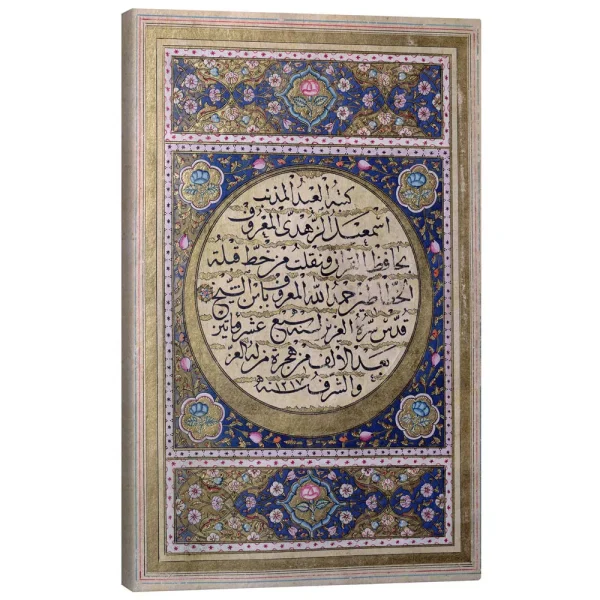 كتبه العبد المذنب
اسمعيل الزهدى المعروف
بحافظ القرآن ونقلت من خط قبلة
الخطاطين حمد الله المعروف بابن الشيخ
قدس سره العزيز لسنة سبع عشر ومأتين
بعد الألف من هجرة من له العز
والشرف سنة ١٢١٧